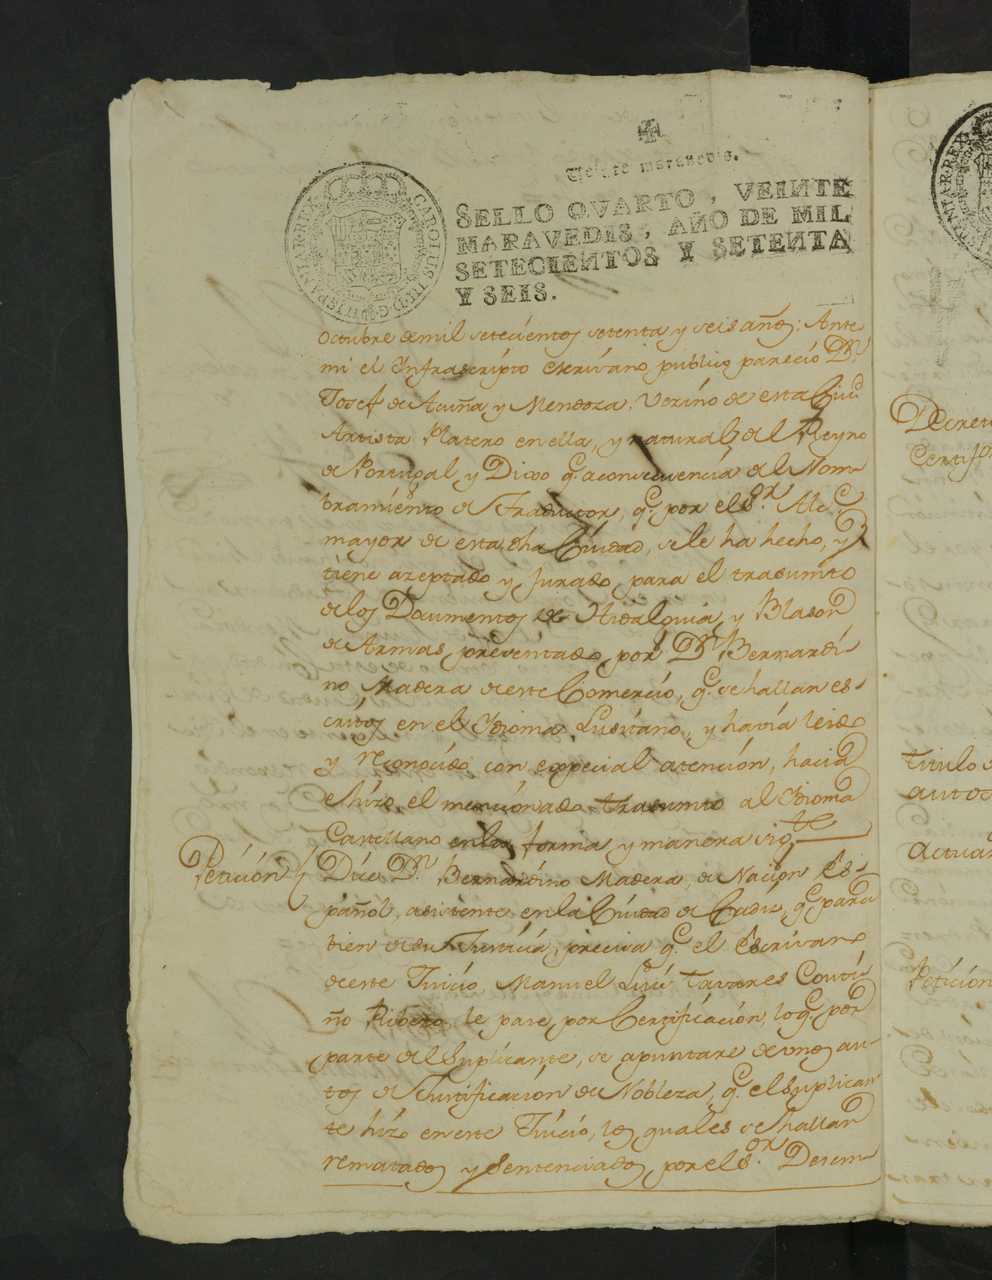 Veinte maravedis.
SELLO QVARTO, VEINTE
MARAVEDIS, AÑO DE MIL
SETECIENTOS Y SETENTA
Y SEIS.
CAROLUS III D G HISPANIAR REX
Octubre de mil setecientos setenta y seis años: Ante
mi el Infrascripto escrivano publico pareció Dn.
Josef de Acuña y Mendoza, Vezino de esta Ciud.
Artista Platero en ella, y natural del Reyno
de Portugal, y Dixo q.e a consequencia del Nom-
bramiento de Traductor, q.e por el S.or Alc.e
mayor de esta dha Ciudad, se le ha hecho, y
tiene azeptado y Jurado, para el trasumto
de los Documentos de Hidalguia, y Blason
de Armas, presentado, por Dn. Bernardi-
no Madera de este Comercio, q.e se hallan es-
critos en el Idioma Lusitano, y havia leido
y reconocido, con especial atencion, hacia
e hizo, el mencionado trasumto al Idioma
Castellano en la forma y manera sig.te
Petición Dice Dn. Bernardino Madera, de Nacion Es-
pañol, asistente en la Ciudad de Cadiz, q.e para
bien de su Justicia, precisa q.e el Escrivano
de este Juicio, Manuel Luis Tavares Couti-
ño Ribero, le pase por Certificacion, lo q.e por
parte del Suplicante, se apuntare de unos au-
tos de Justificacion de Nobleza, q.e el Suplican-
te hizo en este Juicio, los quales se hallan
rematados y Sentenciados, por el S.or Desem-
Decreto
Certif
Titulo
autos
Actua
Petición